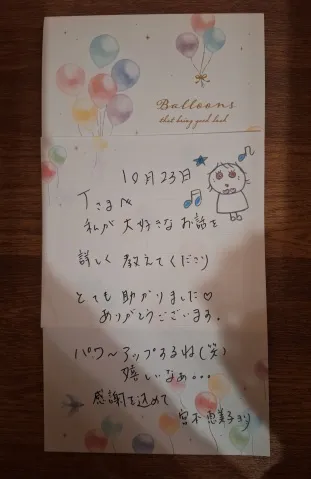 Balloons
that bring good luck
10月23日
Tさまへ
私が大好きなお話を
詳しく教えてくださり
とても助かりました♡
ありがとうございます。
パワ〜アップするね(笑)
嬉しいなぁ...
感謝を込めて
宮本恵美子より